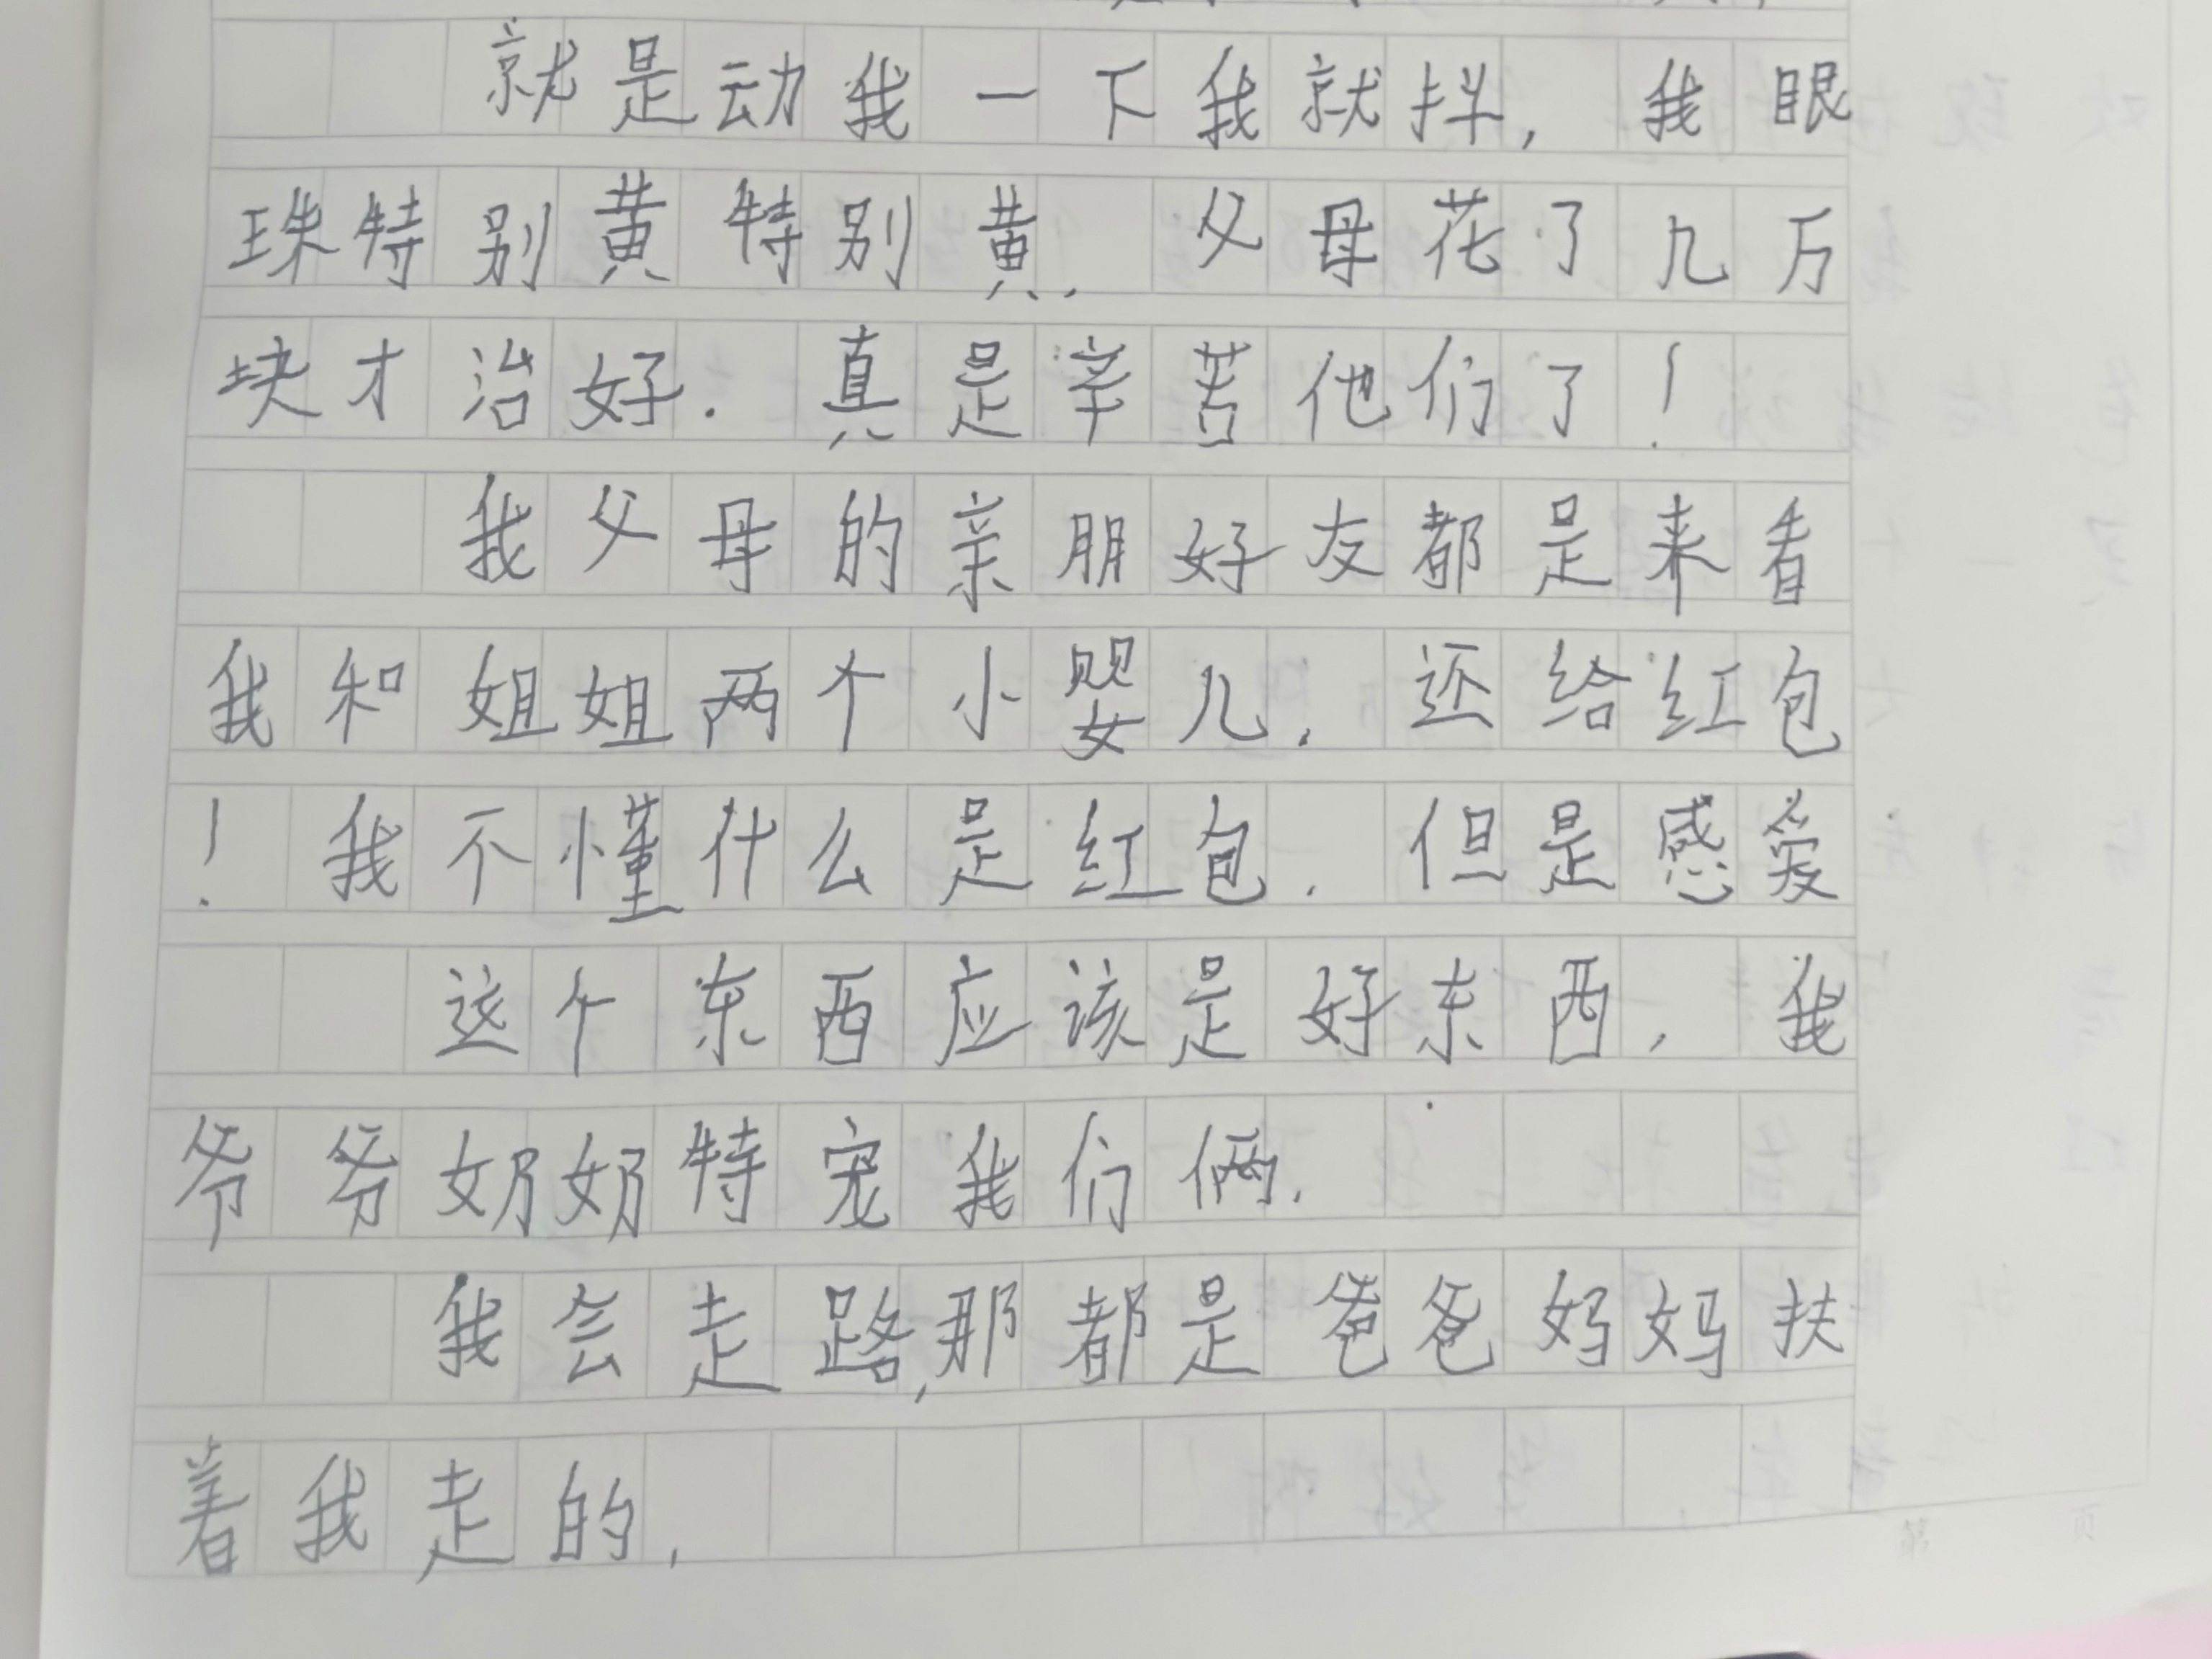 就是动我一下我就抖，我眼
珠特别黄特别黄.父母花了几万
块才治好.真是辛苦他们了！
我父母的亲朋好友都是来看
我和姐姐两个小婴儿.还给红包
！我不懂什么是红包.但是感爱
这个东西应该是好东西，我
爷爷奶奶特宠我们俩.
我会走路,那都是爸爸妈妈扶
着我走的，
第 页